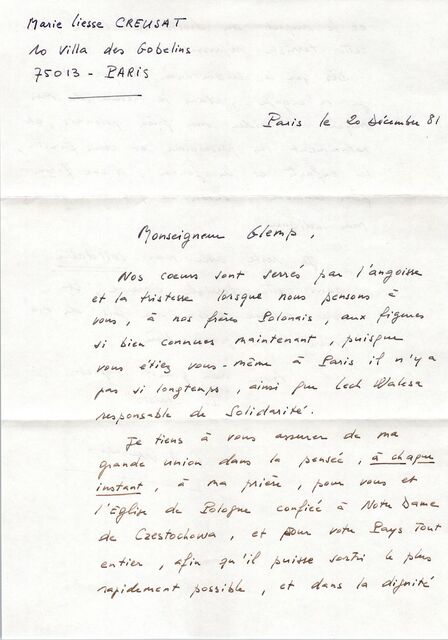 Marie Liesse CREUSAT
10 Villa des Gobelins
75013 - PARIS
Paris le 20 Décembre 81
Monseigneur Glemp,
Nos coeurs sont serrés par l'angoisse
et la tristesse lorsque nous pensons à
vous, à nos frères Polonais, aux figures
si bien connues maintenant, puisque
vous étiez vous-même à Paris il n'y a
pas si longtemps, ainsi que Lech Walesa
responsable de Solidarité.
Je tiens à vous assurer de ma
grande union dans la pensée, à chaque
instant, à ma prière, pour vous et
l'Eglise de Pologne confiée à Notre Dame
de Czestochowa, et pour votre Pays tout
entier, afin qu'il puisse sortir le plus
rapidement possible, et dans la dignité